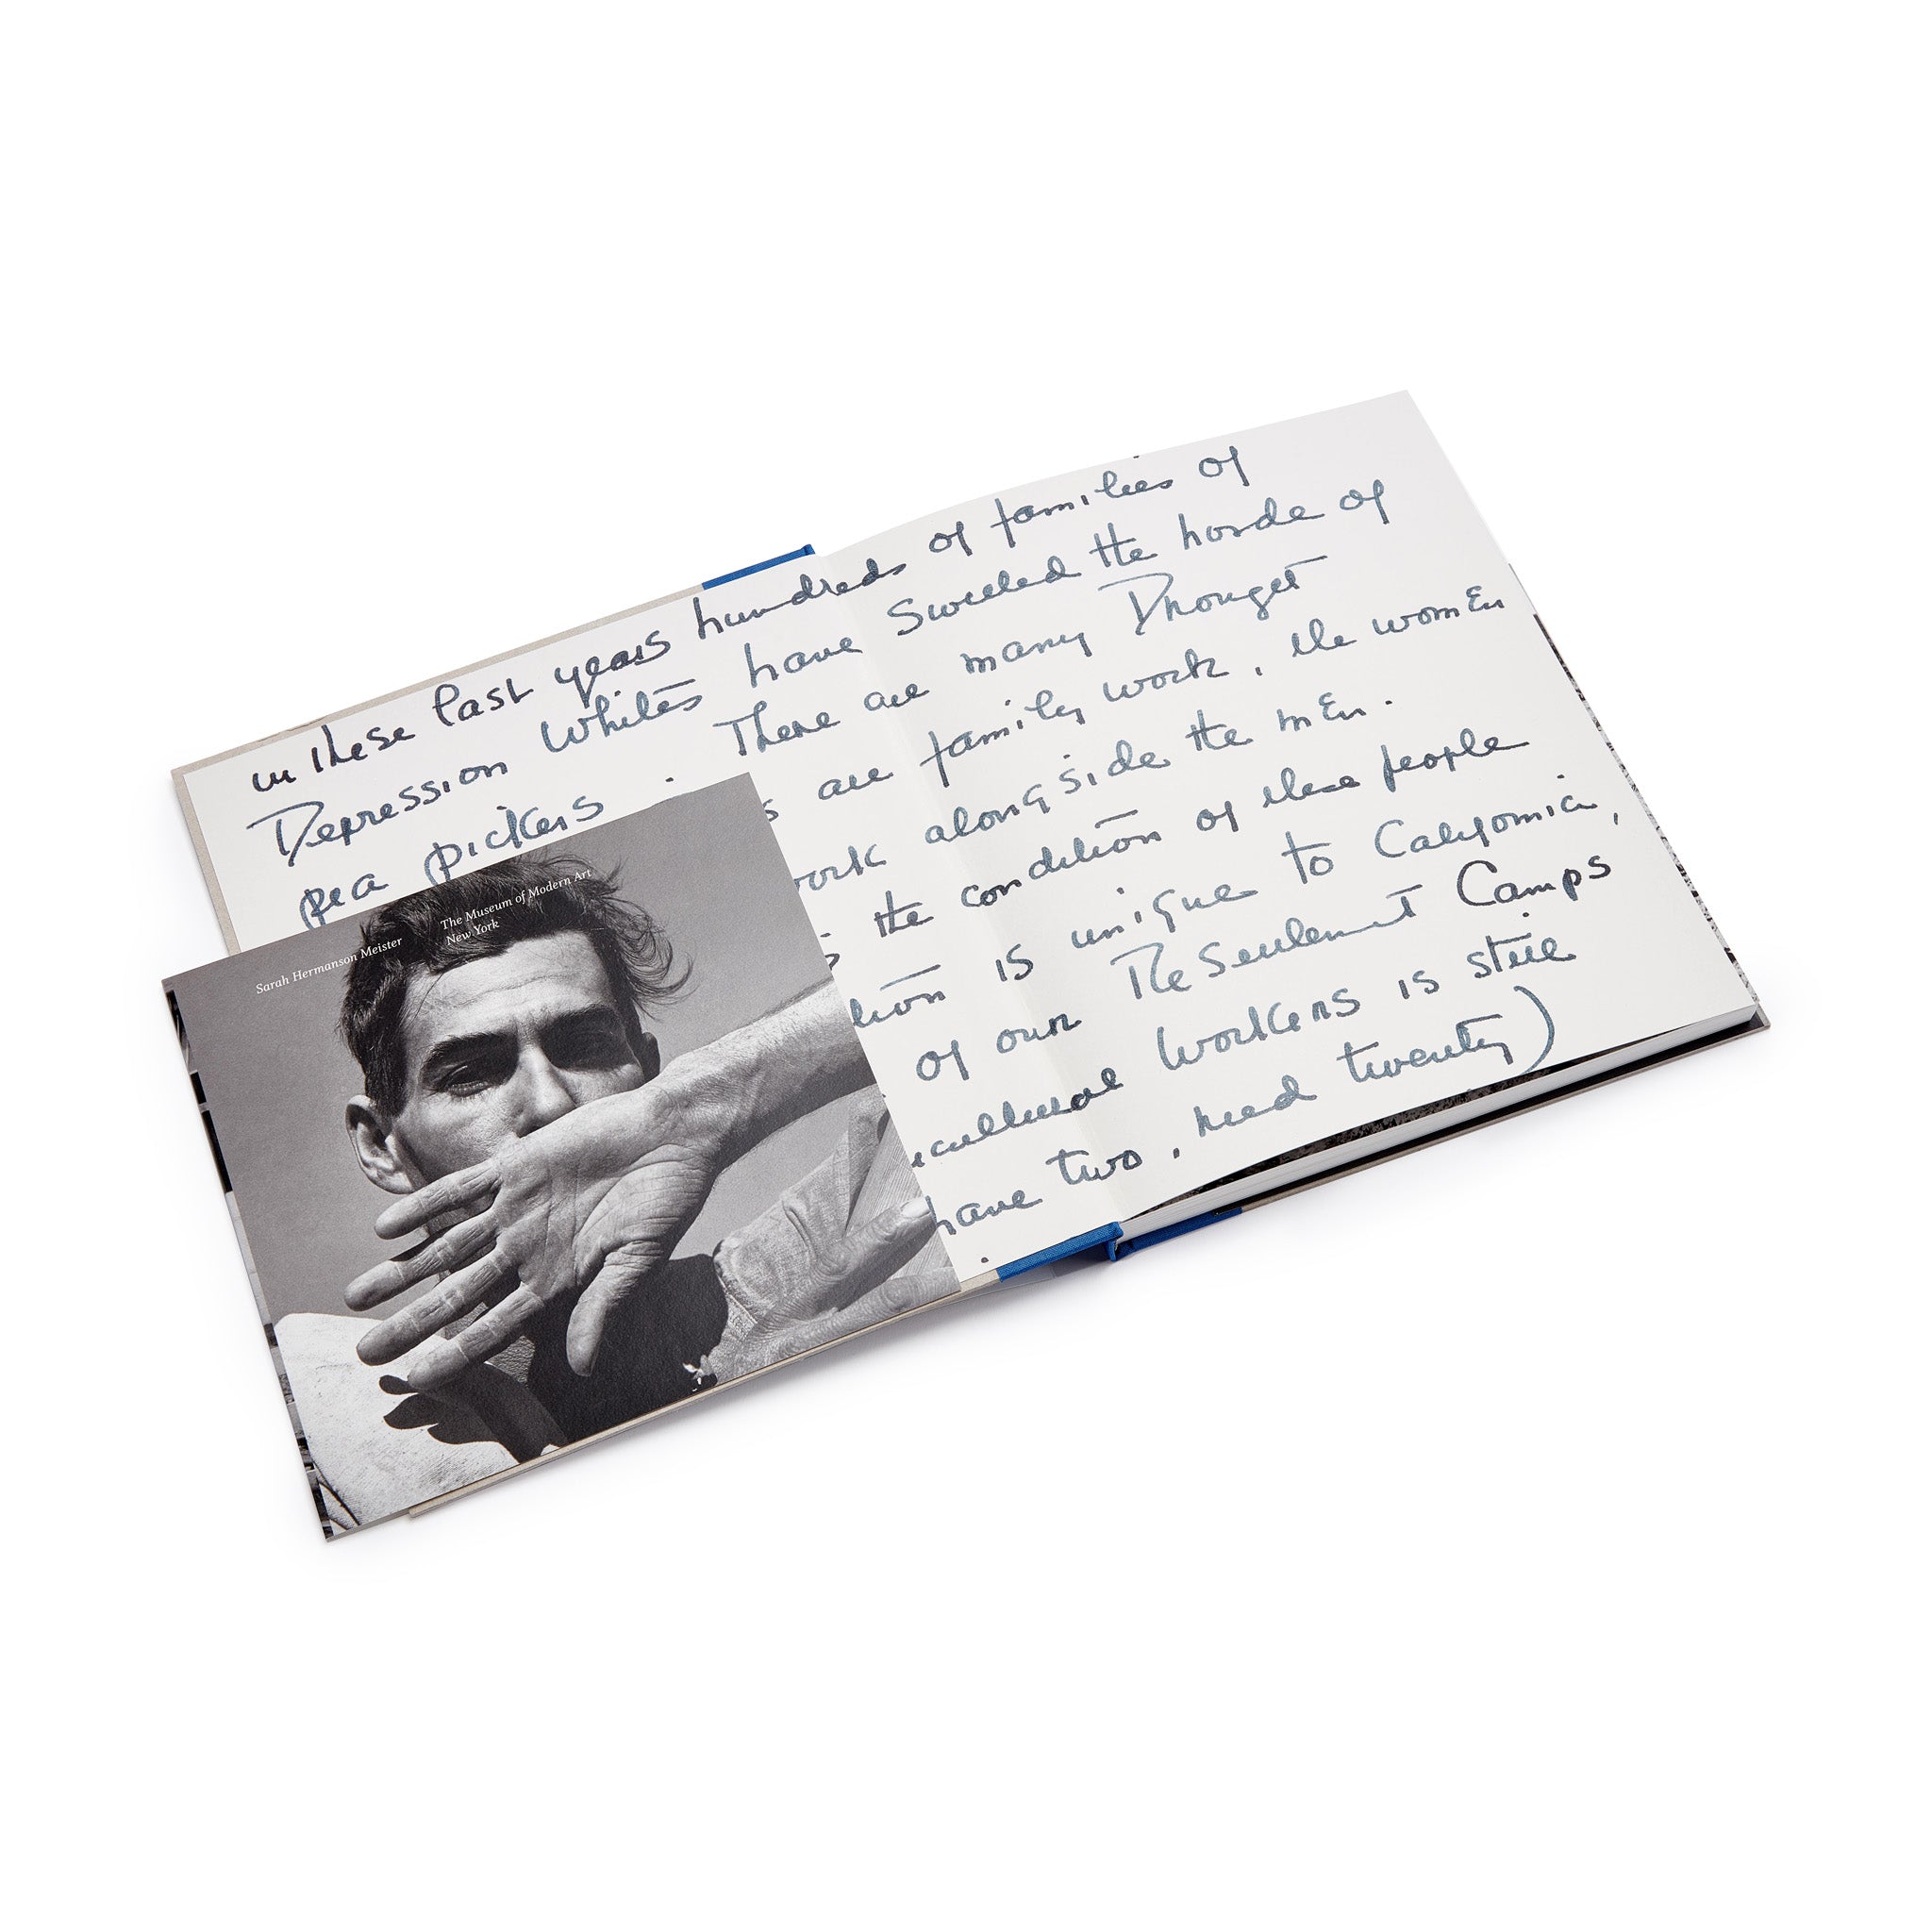 in these last years hundreds of families of
Depression Whites have swelled the horde of
pea pickers. There are many Drought
s are family work, the women
work alongside the men.
the condition of these people
ition is unique to California,
of our Resettlement Camps
icultural workers is still
have two, need twenty)
Sarah Hermanson Meister
The Museum of Modern Art
New York